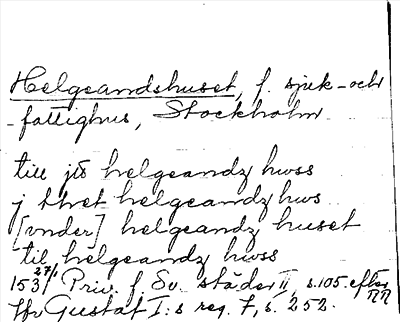 Helgeandshuset, f. sjuk- och
-fattighus, Stockholm.
till jtt helgeandz hwss
j thet helgeandz hws
[vnder] helgeandz huset
til helgeandz hwss
153 27/1 Priv. f. Sv. städer II, s. 105. efter RR
Jfr Gustaf I:s reg. 7, s. 252.